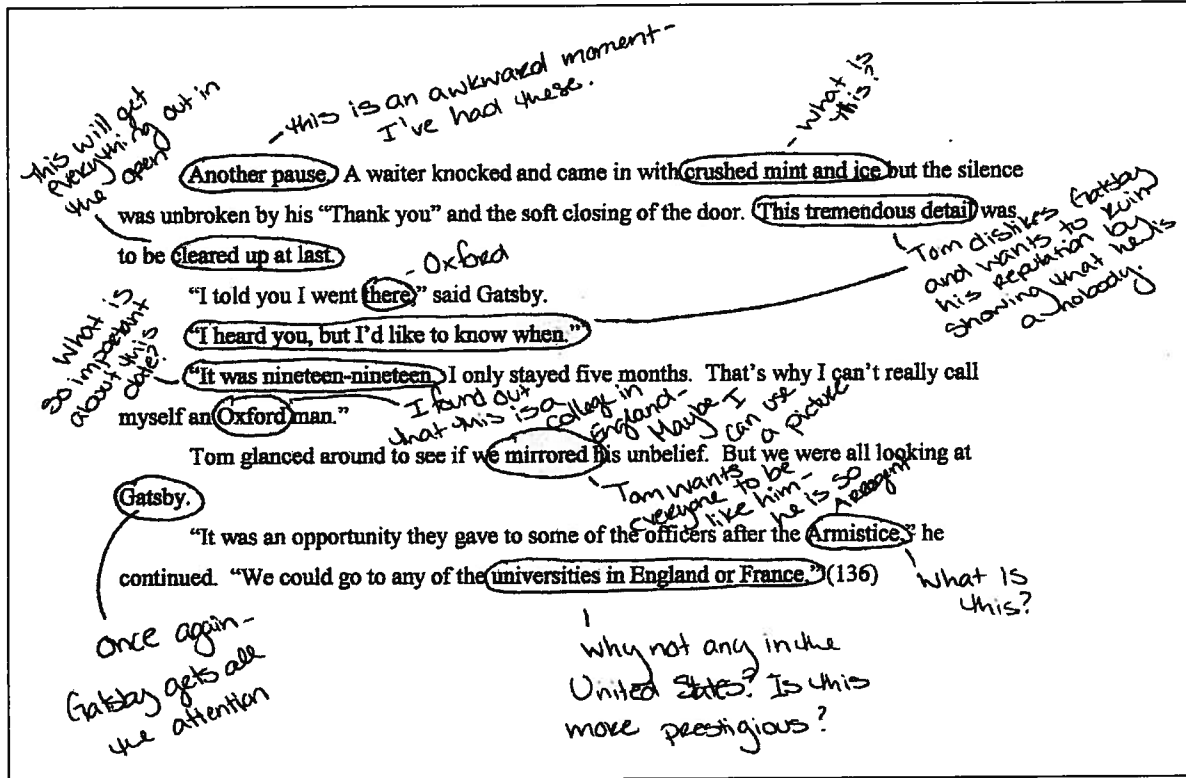 this is an awkward moment-
I've had these.
- what is
this?
This will get
everything out in
the open
Another pause. A waiter knocked and came in with crushed mint and ice but the silence
was unbroken by his “Thank you” and the soft closing of the door. This tremendous detail was
to be cleared up at last.
Tom dislikes Gatsby
and wants to ruin
his reputation by
showing that he is
a nobody.
- Oxford
“I told you I went there,” said Gatsby.
“I heard you, but I’d like to know when.”
What is
so important
about this
date?
“It was nineteen-nineteen, I only stayed five months. That’s why I can’t really call
myself an Oxford man.”
I found out
that this is a
college in
England-
Maybe I
can use
a picture
Tom glanced around to see if we mirrored his unbelief. But we were all looking at
Gatsby.
Tom wants
everyone to be
like him-
he is so
Arrogant
“It was an opportunity they gave to some of the officers after the Armistice,” he
continued. “We could go to any of the universities in England or France.” (136)
what is
this?
once again-
Gatsby gets all
the attention
why not any in the
United States? Is this
more prestigious?